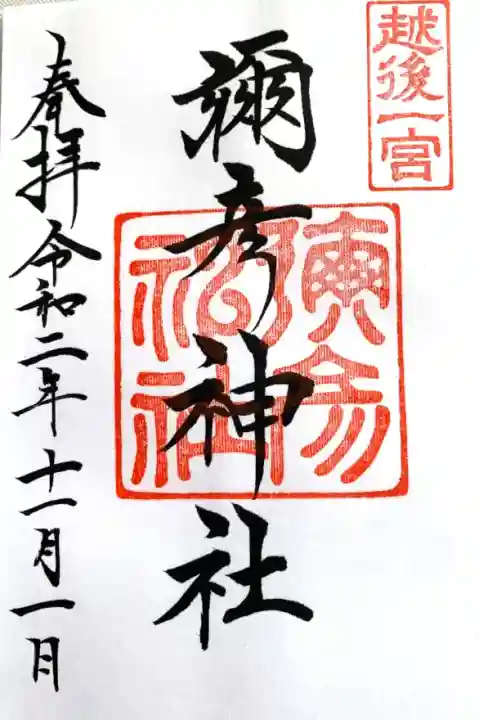 越後一宮
彌彦神社
奉拝令和二年十一月一日